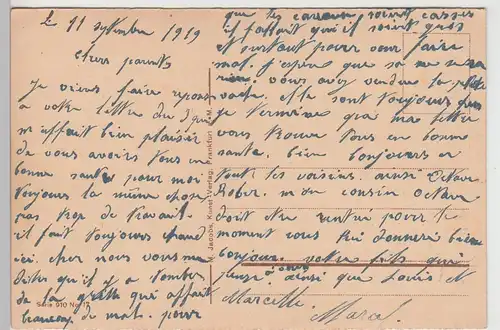 le 11 septembre 1919
chers parents
Je viens faire repons
a votre lettre du 3 qui
m affait bien plaisir
de vous avoirs tous en
bonne sante pour moi
toujours la même chose
pas trop de travail.
il fait toujours chaud
ici. chez nous vous ma
dites qu'il y a tombez
de la grelle qui affait
beaucoup de mal. pour
que les carreau soient casser
il fallait qu'il soient gros
et surtout pour vous faire
mal. j'espère que sa ne sera
rien. vous avez vendu la petite
vache. et le sont toujours
Je termine que ma lettre
vous trouve tous en bonne
sante. bien bonjours a
tout les voisins. ainsi
mon cousin Octave
doit être rentrer pour le
moment vous lui donnerez bien
bonjour. votre fils qui
pense a vous ainsi que Louis et
Marcelle
Marcel
N. Jacobs, Kunst-Verlag, Frankfurt a. M.
Serie 910 No 17